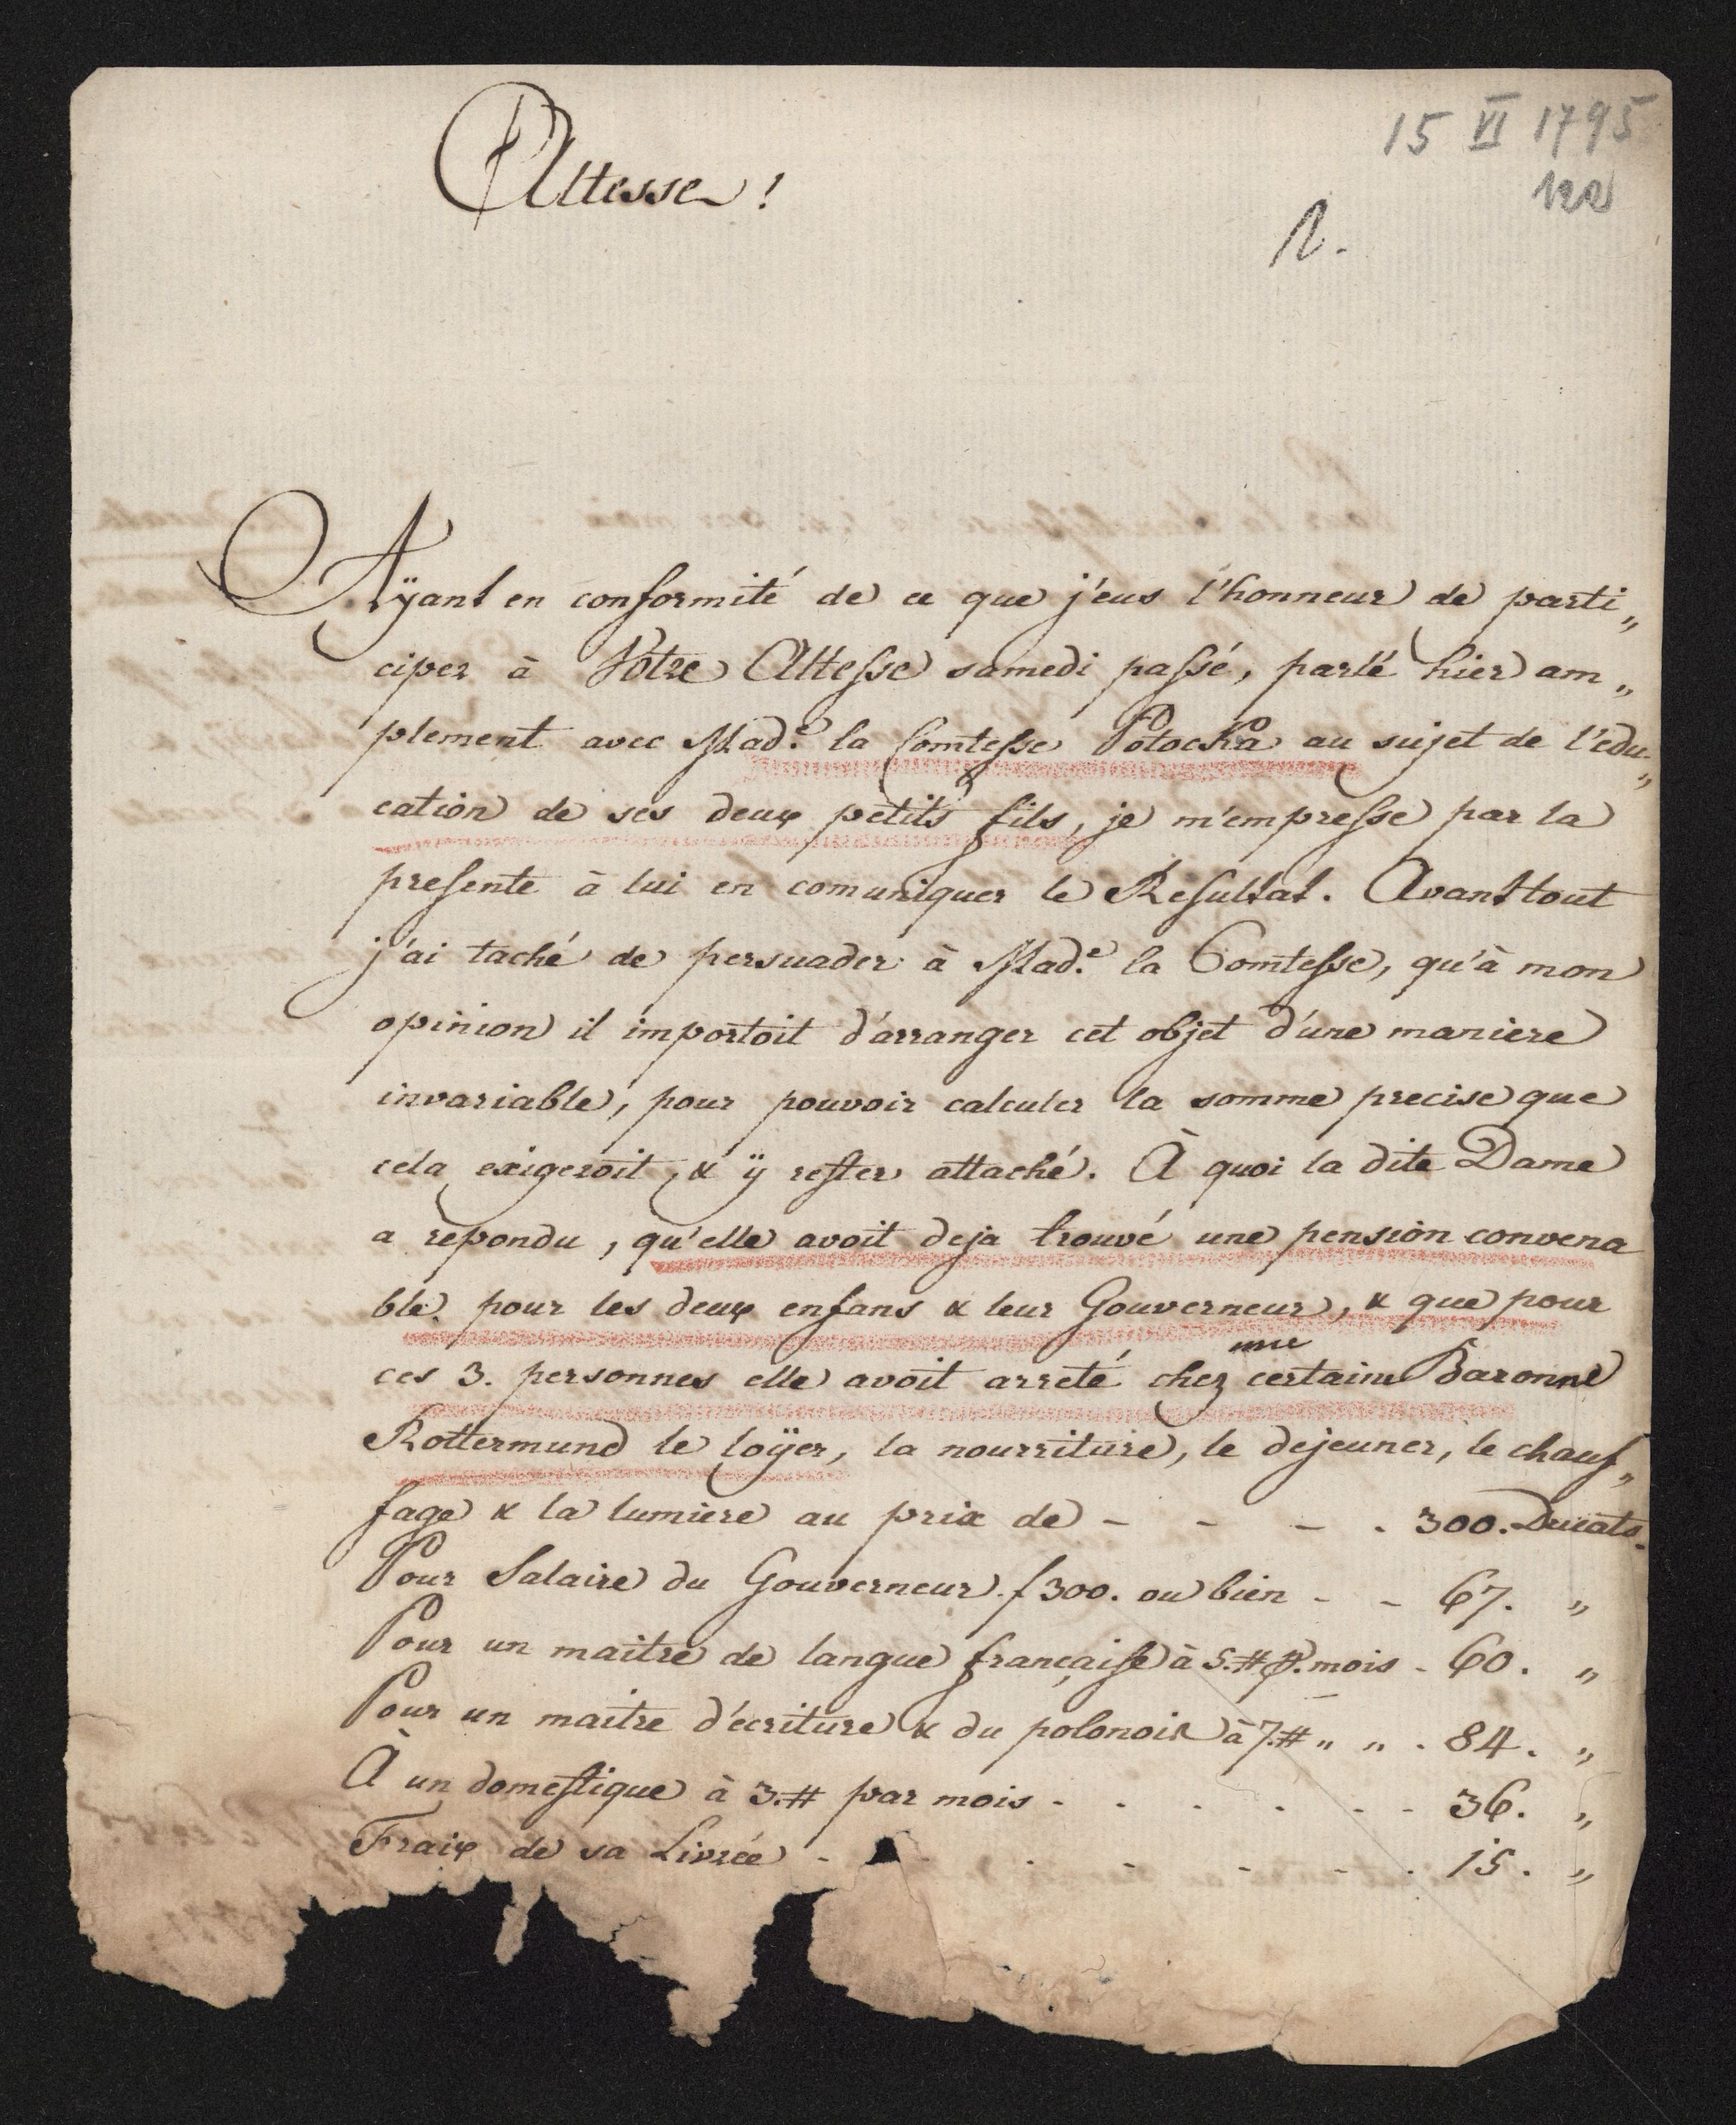 15 VI 1795
122
Altesse !
Aÿant en conformité de ce que j'eus l'honneur de parti„
ciper à Votre Altesse samedi passé, parlé hier am„
plement avec Mad.e la Comtesse Potocka au sujet de l'edu„
cation de ses deux petits fils, je m'empresse par la
presente à lui en comuniquer le Resultat. Avant tout
j'ai taché de persuader à Mad.e la Comtesse, qu'à mon
opinion il importoit d'arranger cet objet d'une maniere
invariable, pour pouvoir calculer la somme precise que
cela exigeroit, & ÿ rester attaché. À quoi la dite Dame
a repondu, qu'elle avoit deja trouvé une pension convena
ble pour les deux enfans & leur Gouverneur, & que pour
ces 3. personnes elle avoit arreté chez une certaine Baronne
Rottermund le loÿer, la nourriture, le dejeuner, le chauf„
fage & la lumiere au prix de - - - . 300. Ducats.
Pour Salaire du Gouverneur f 300. ou bien - - 67. „
Pour un maitre de langue française à 5.# p. mois - 60. „
Pour un maitre d'écriture & du polonois à 7.# „ „ . 84. „
À un domestique à 3.# par mois - . . . - - 36. „
Fraix de sa Livrée - . . - - - . 15. „